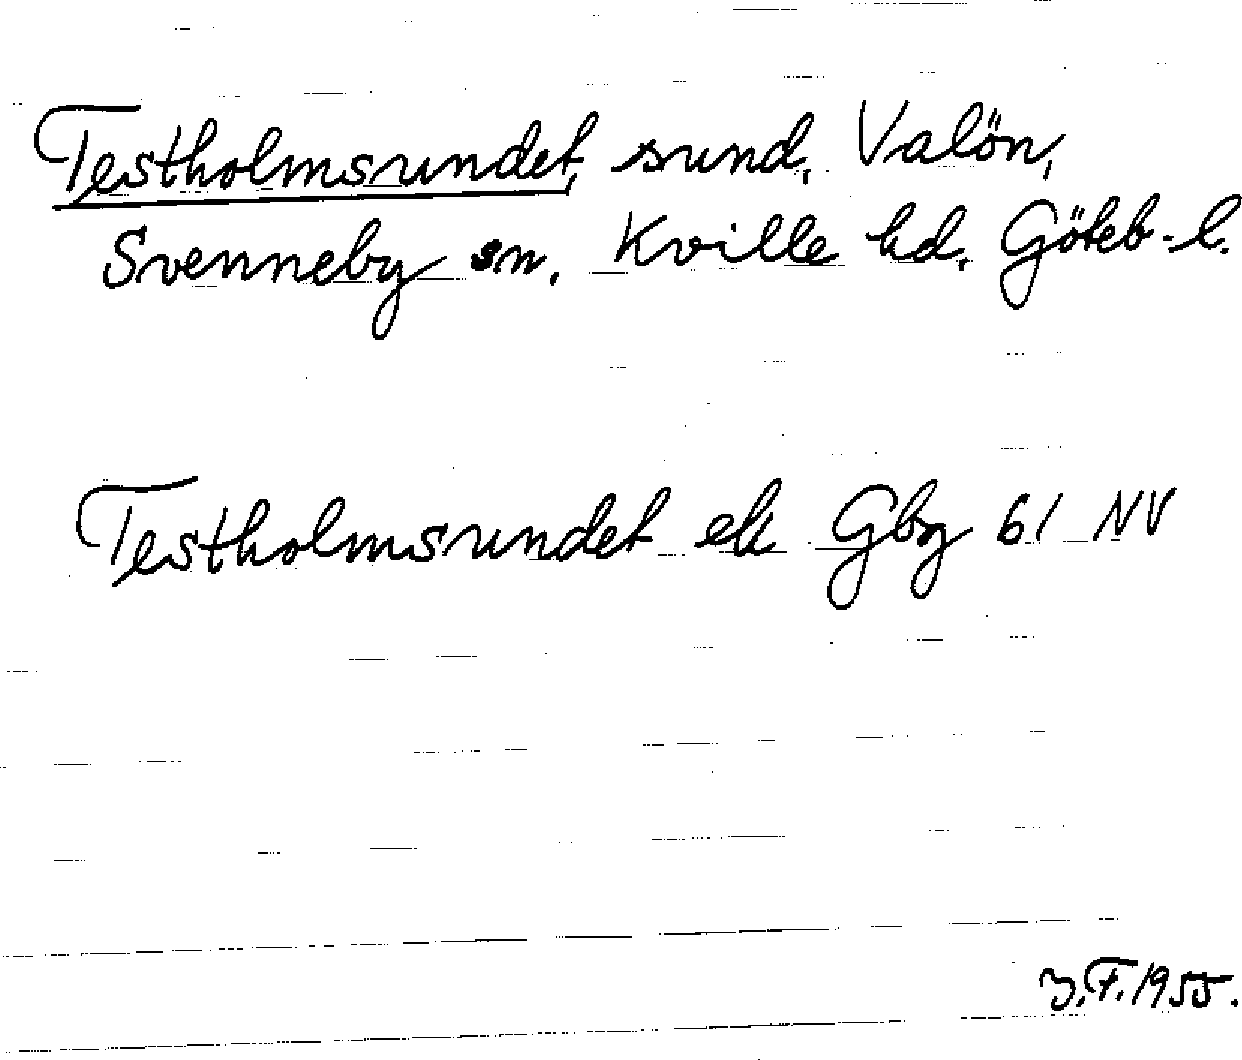 Testholmsundet, sund, Valön,
Svenneby sn. Kville hd. Göteb-l.
Testholmsundet ek Gbg 61 NV
J.F. 1955.